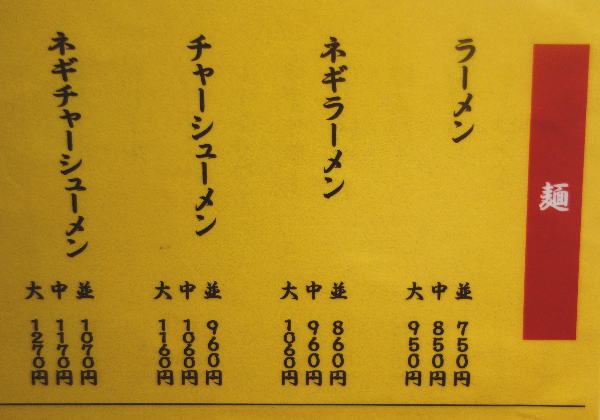 麺
ラーメン
並 750円
中 850円
大 950円
ネギラーメン
並 860円
中 960円
大 1060円
チャーシューメン
並 960円
中 1060円
大 1160円
ネギチャーシューメン
並 1070円
中 1170円
大 1270円